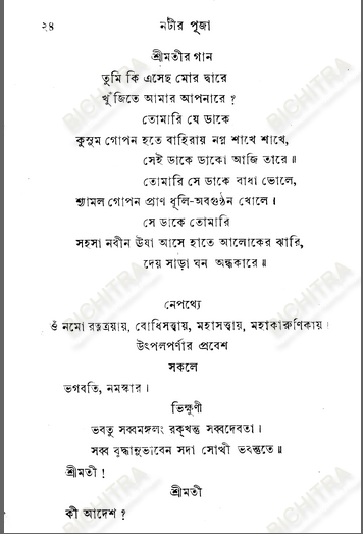 ২৪ নটীর পূজা
শ্রীমতীর গান
তুমি কি এসেছ মোর দ্বারে
খুঁজিতে আমার আপনারে ?
তোমারি যে ডাকে
কুসুম গোপন হতে বাহিরায় নগ্ন শাখে শাখে,
সেই ডাকে ডাকো আজি তারে॥
তোমারি সে ডাকে বাধা ভোলে,
শ্যামল গোপন প্রাণ ধূলি-অবগুণ্ঠন খোলে।
সে ডাকে তোমারি
সহসা নবীন ঊষা আসে হাতে আলোকের ঝারি,
দেয় সাড়া ঘন অন্ধকারে॥
নেপথ্যে
ওঁ নমো রত্নত্রয়ায়, বোধিসত্ত্বায়, মহাসত্ত্বায়, মহাকারুণিকায়।
উৎপলপর্ণার প্রবেশ
সকলে
ভগবতি, নমস্কার।
ভিক্ষুণী
ভবতু সব্বমঙ্গলং রক্‌খন্তু সব্বদেবতা।
সব্ব বুদ্ধানুভাবেন সদা সোত্থী ভবন্তুতে॥
শ্রীমতী !
শ্রীমতী
কী আদেশ ?
BICHITRA